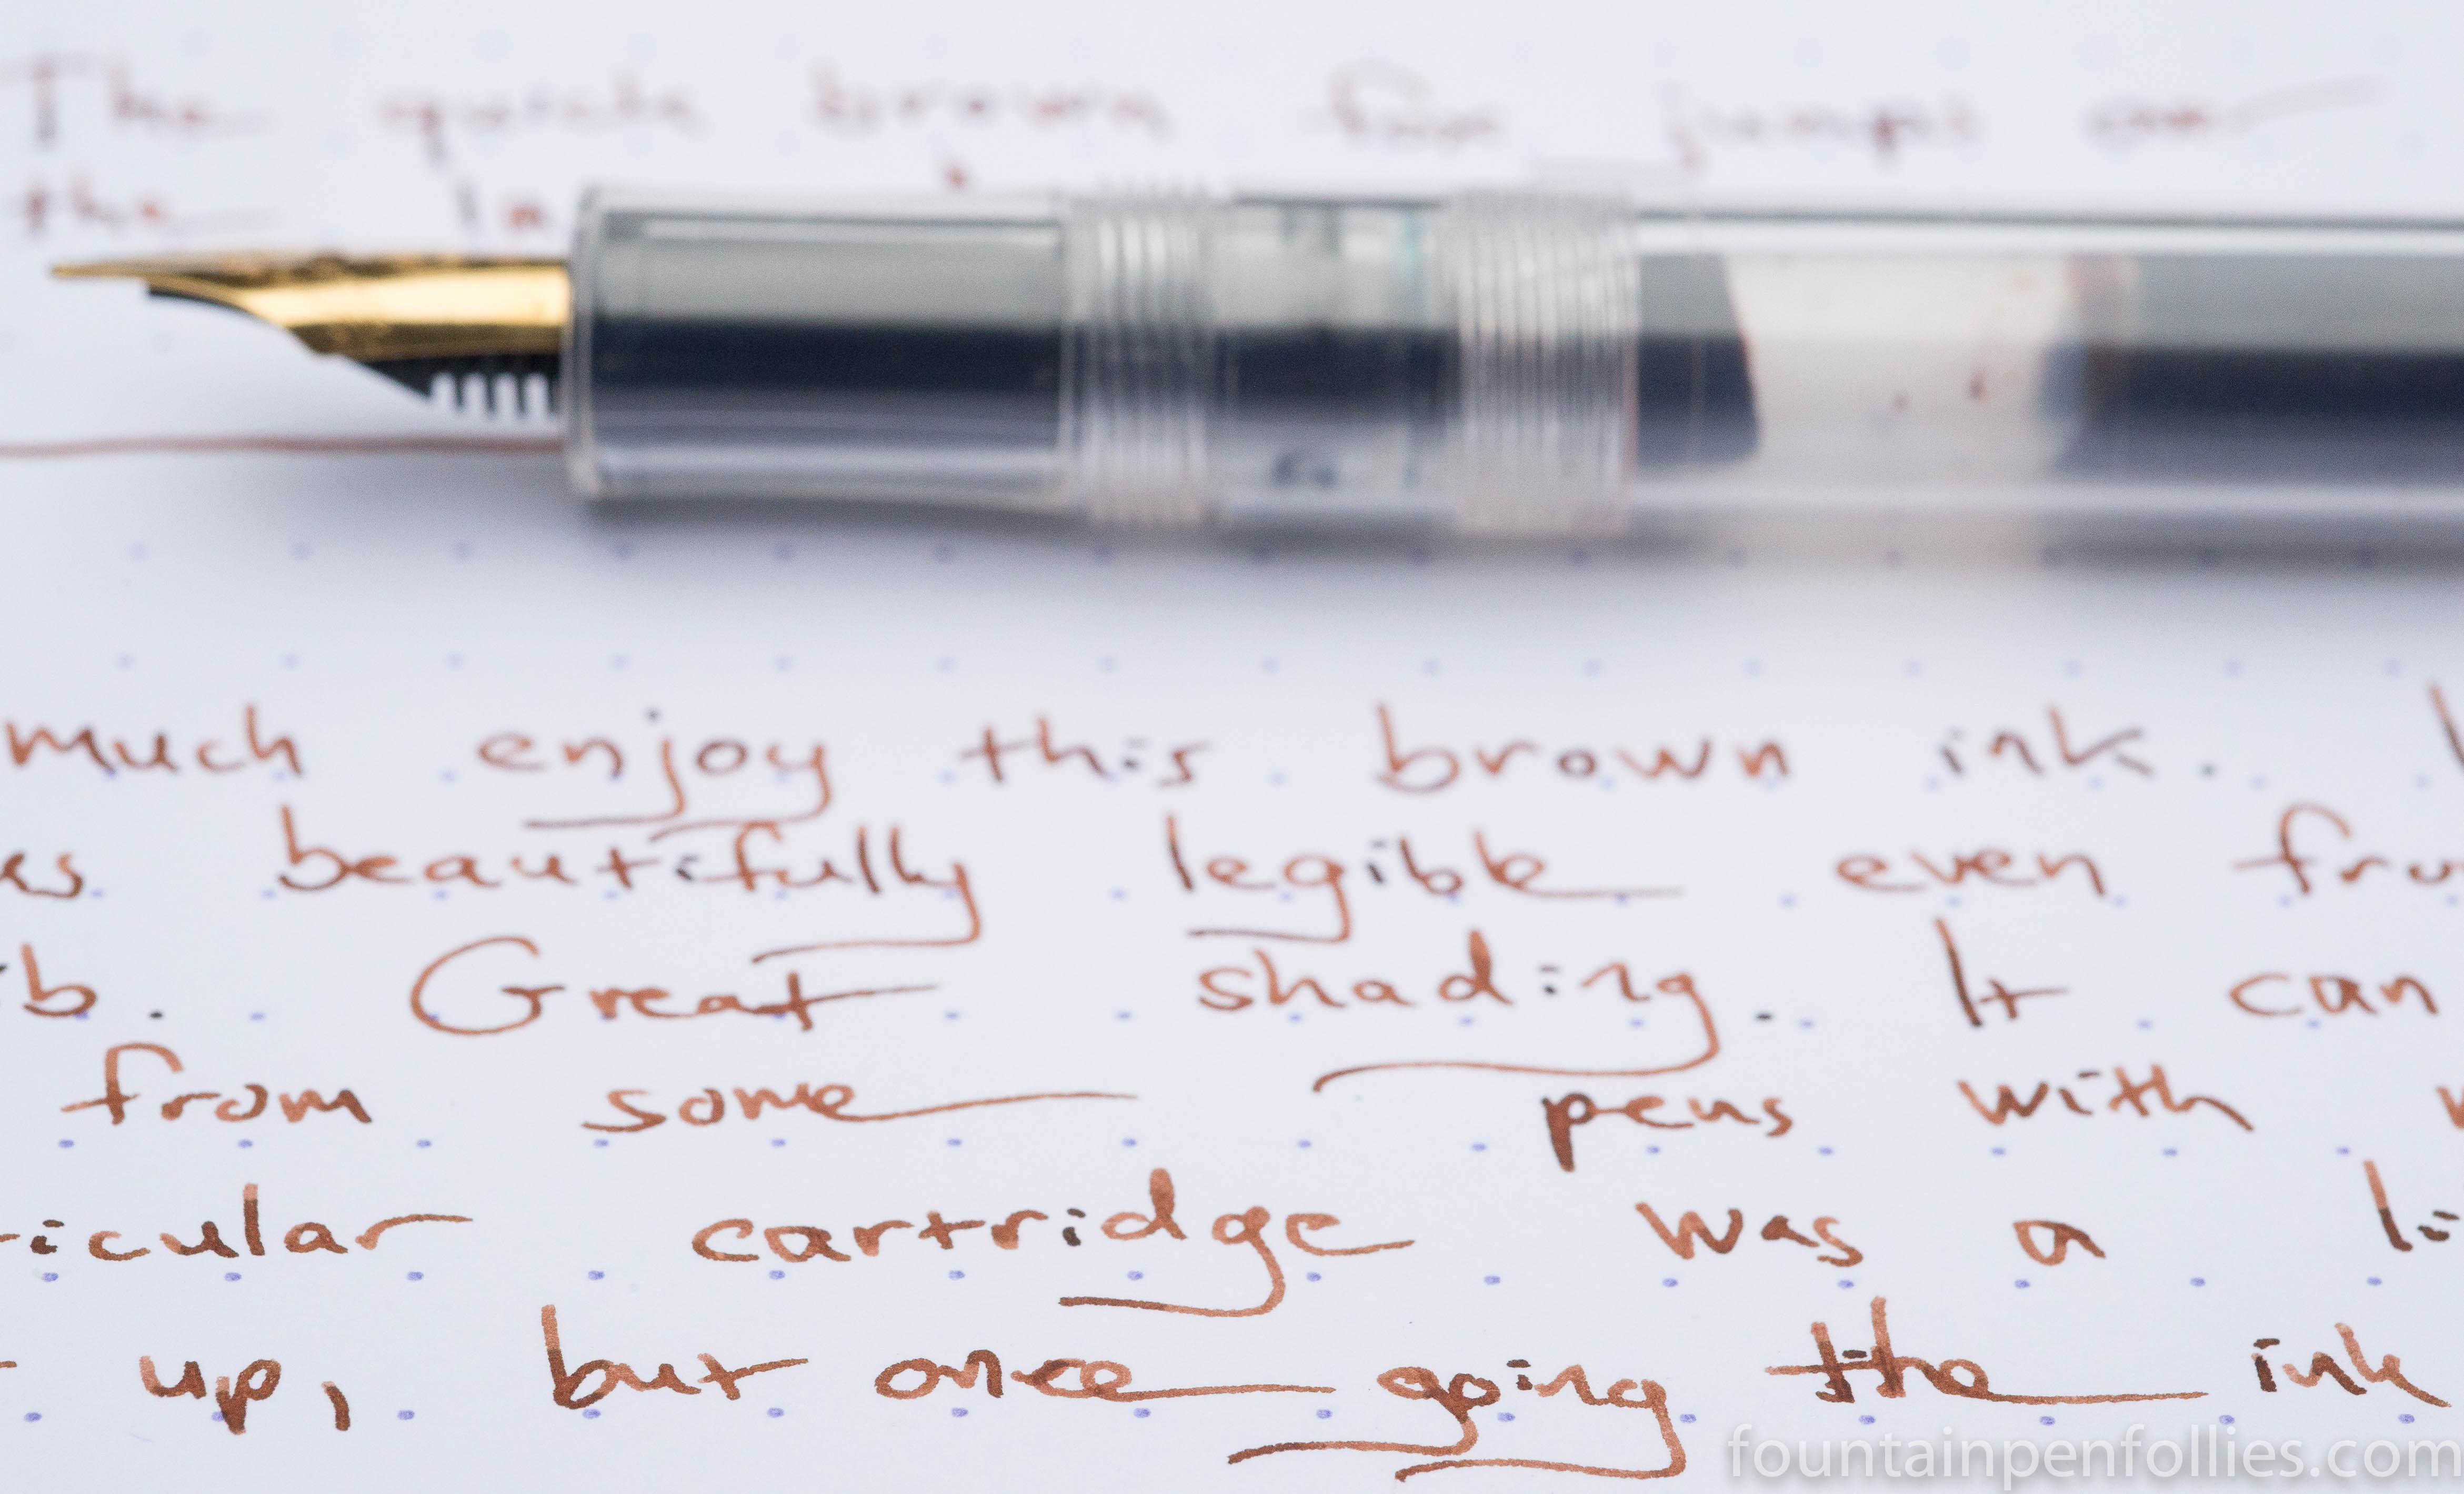 The quick brown fox jumps over
the la
much enjoy this brown ink.
as beautifully legible even fro
ib. Great shading. It can
from some pens with
ricular cartridge was a li
up, but once going the ink
fountainpenfollies.com